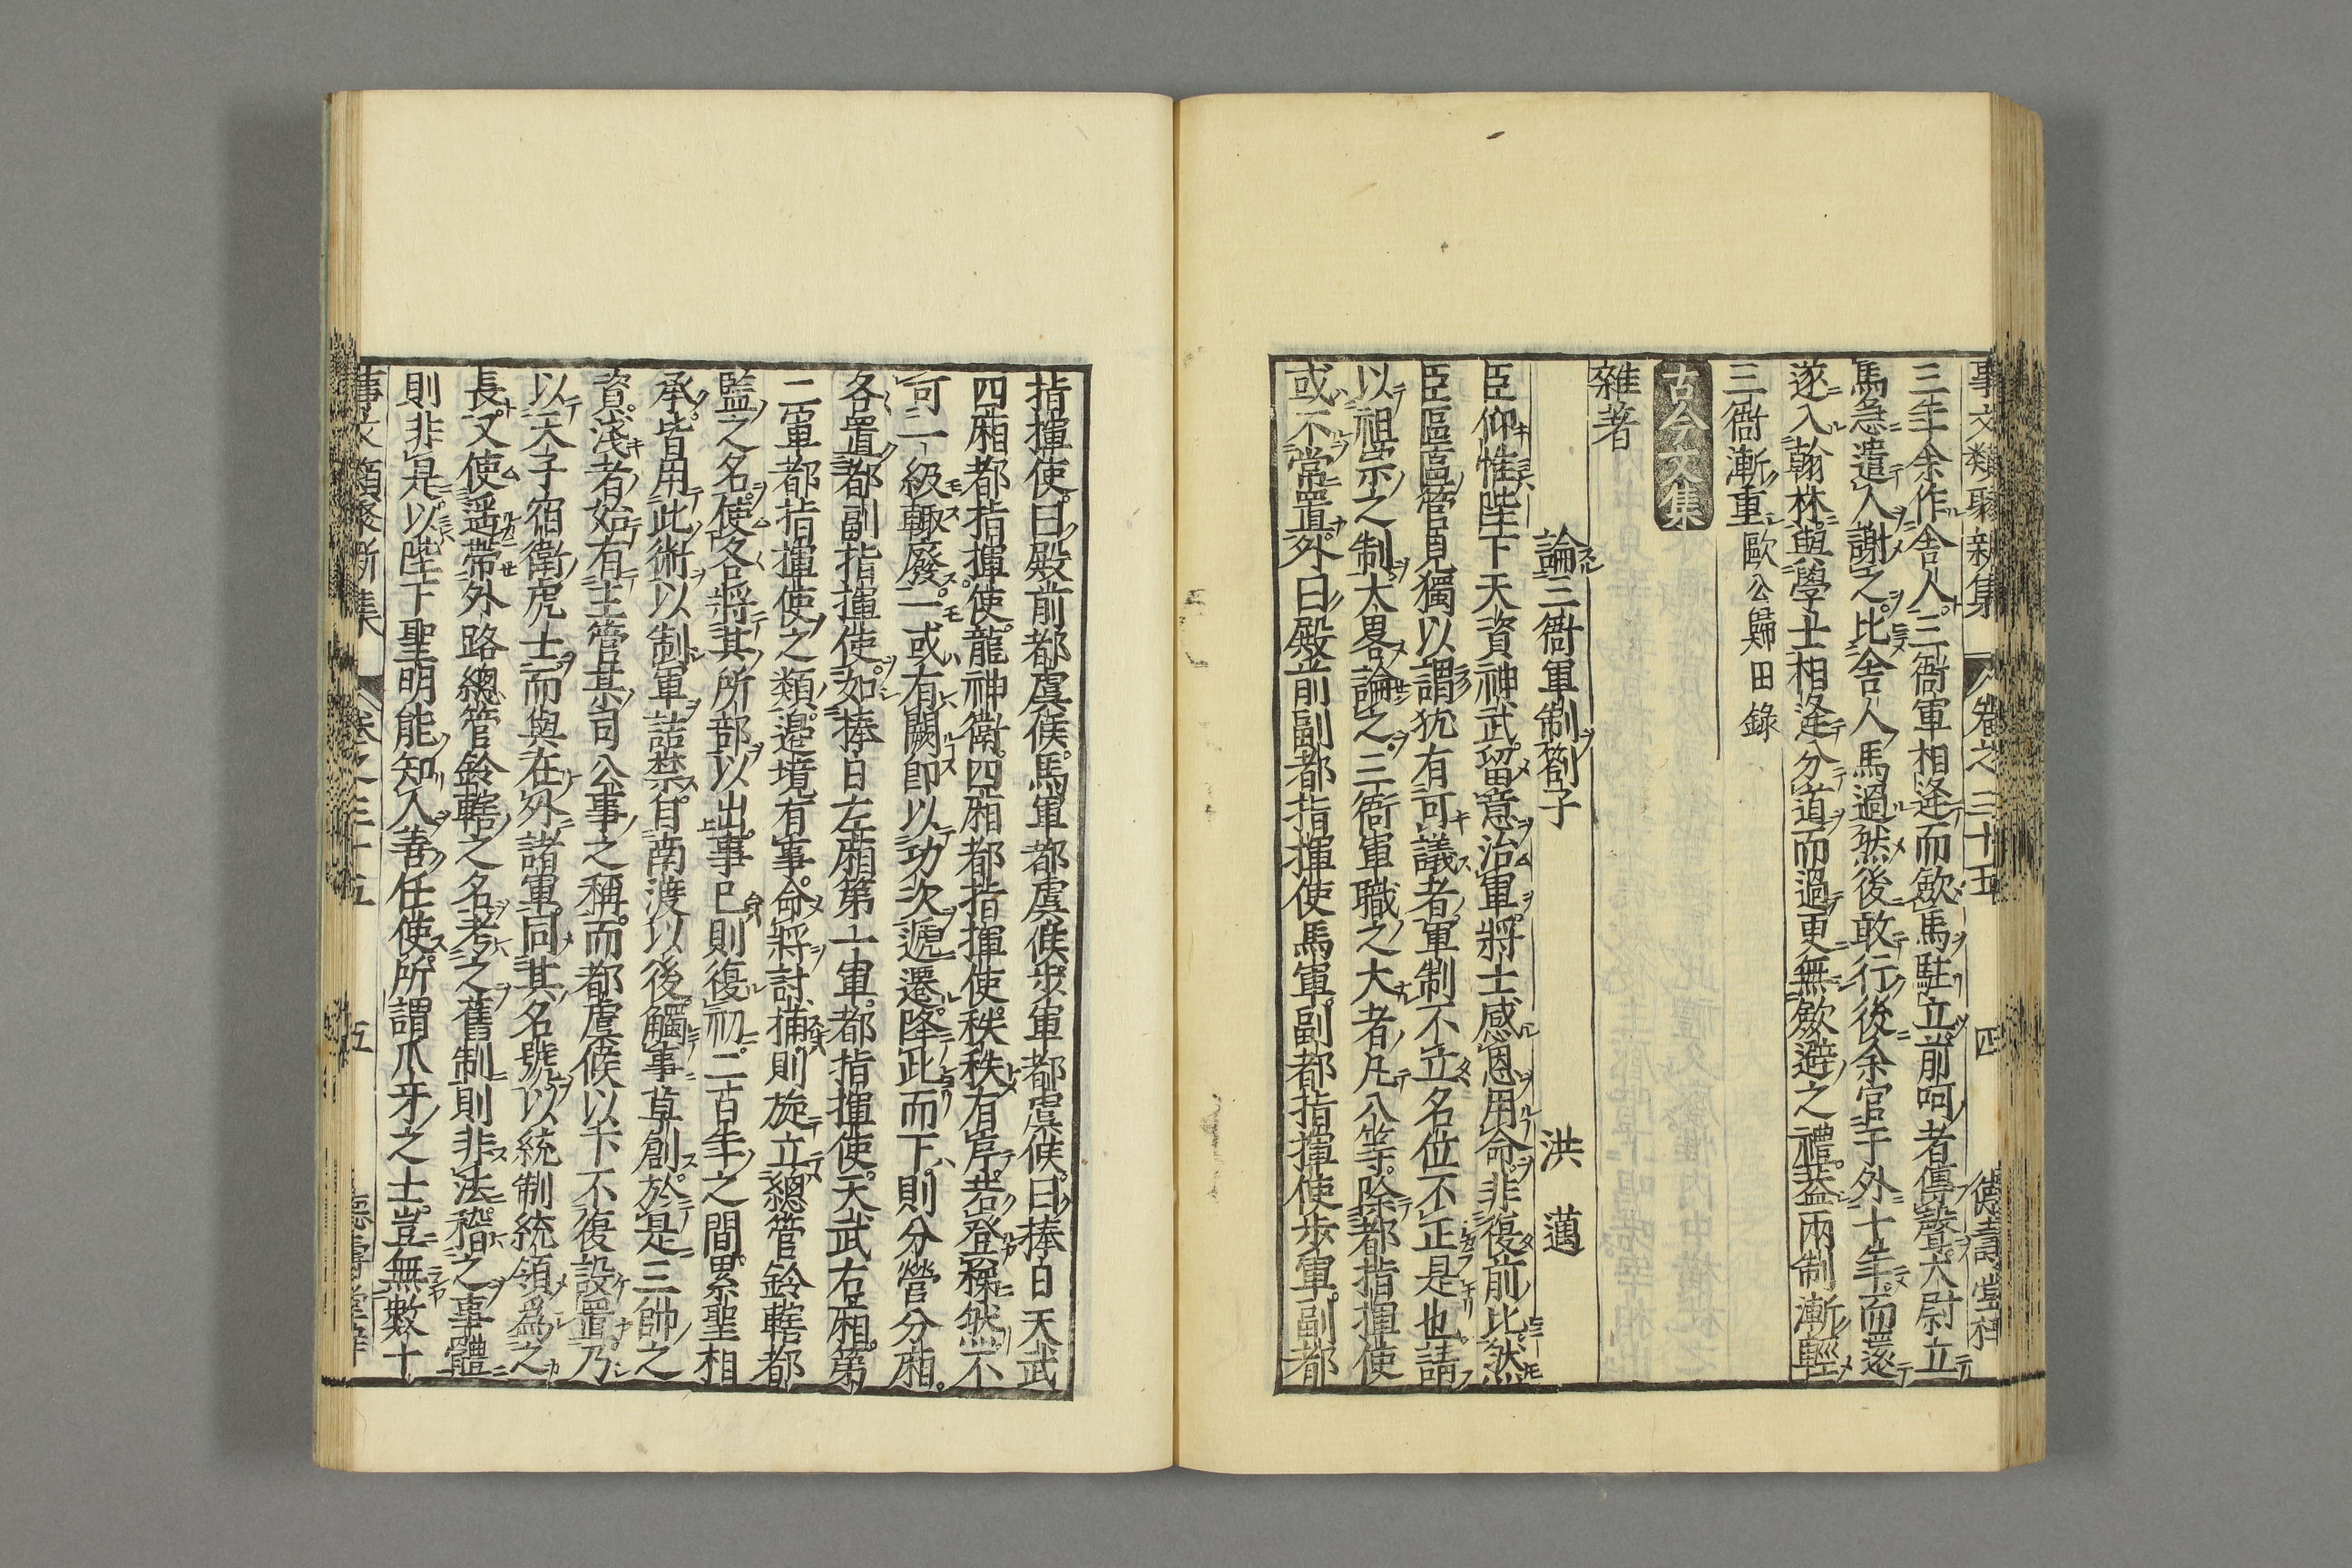 事文類聚新集 卷之三十五 四 德壽堂梓
三年余作舍人三衙軍相逢而歛馬駐立前呵者傳聲太尉立
馬急遣人謝之比舍人馬過然後敢行後余官于外十年而還
遂入翰林與學士相逢分道而過更無歛避之禮葢兩制漸輕
三衙漸重歐公歸田錄
古今文集
雜著
論三衙軍制劄子 洪邁
臣仰惟陛下天資神武留意治軍將士感恩用命非復前比然
臣區區管見獨以謂犹有可議者軍制不立名位不正是也請
以祖宗之制太畧論之三衙軍職之大者凡八等除都指揮使
或不常置外曰殿前副都指揮使馬軍副都指揮使步軍副都
指揮使曰殿前都虞候馬軍都虞候步軍都虞候曰捧日天武
四廂都指揮使龍神衛四廂都指揮使秩秩有序若登梯然不
可一級輒廢一或有闕即以功次遞遷降此而下則分營分廂
各置都副指揮使如捧日左廂第一軍都指揮使天武右廂第
二軍都指揮使之類邊境有事命將討捕則旋立總管鈐轄都
監之名使各將其所部以出事已則復初二百年之間累聖相
承皆用此術以制軍詰禁自南渡以後觸事草創於是三帥之
資淺者始有主管某司公事之稱而都虞候以下不復設置乃
以天子宿衛虎士而與在外諸軍同其名號以統制統領爲之
長又使遥帶外路總管鈐轄之名考之舊制則非法稽之事體
則非是以陛下聖明能知人善任使所謂爪牙之士豈無數十
事文類聚新集 卷之三十五 五 德壽堂梓